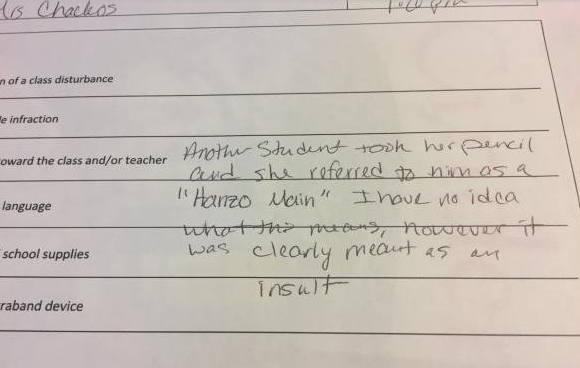 Mrs Chackos
n of a class disturbance
le infraction
oward the class and/or teacher Another Student took her pencil
and she referred to him as a
language "Hanzo Main" I have no idea
what this means, however it
school supplies was clearly meant as an
insult
raband device